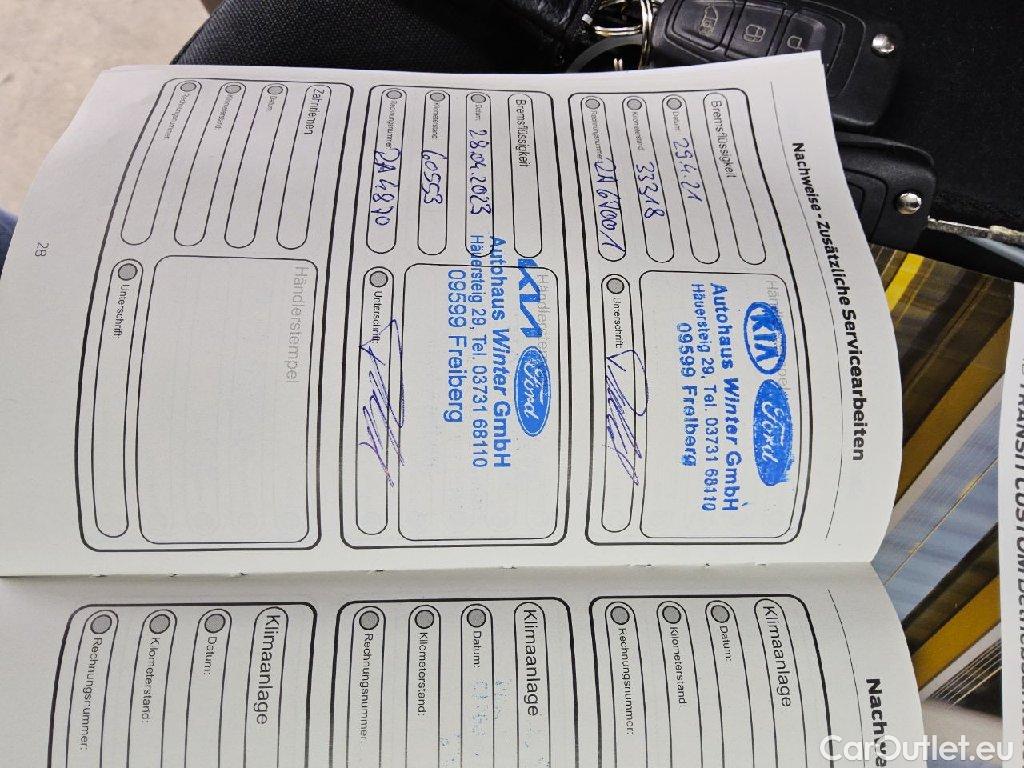 Nachweise - Zusätzliche Servicearbeiten
Bremsflüssigkeit
Datum: 29.4.21
Kilometerstand: 33318
Rechnungsnummer:
KIA Ford
Autohaus Winter GmbH
Häuersteig 29, Tel. 03731 68110
09599 Freiberg
Unterschrift:
Bremsflüssigkeit
Datum: 28.04.2023
Kilometerstand: 60553
Rechnungsnummer: 2A4870
Händlerstempel
KIA Ford
Autohaus Winter GmbH
Häuersteig 29, Tel. 03731 68110
09599 Freiberg
Unterschrift:
Zahnriemen
Datum:
Kilometerstand:
Rechnungsnummer:
Händlerstempel
Unterschrift:
28
Nachwe
Klimaanlage
Datum:
Kilometerstand:
Rechnungsnummer:
Klimaanlage
Datum:
Kilometerstand:
Rechnungsnummer:
Klimaanlage
Datum:
Kilometerstand:
Rechnungsnummer:
TRANSIT CUSTOM
CarOutlet.eu